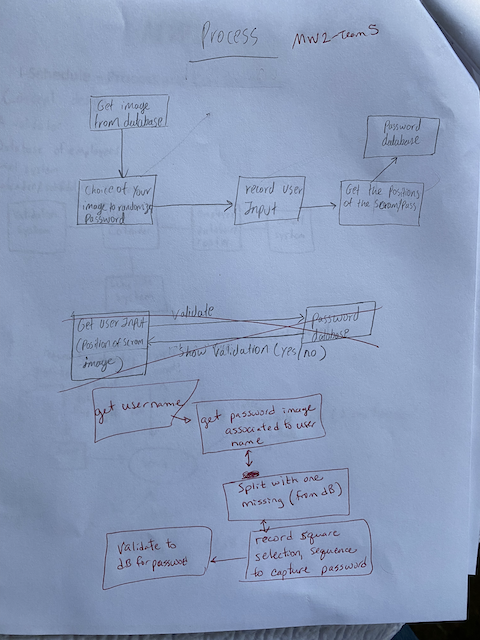 Process
MW2-Team 5
Get image
from database
Choice of Your
image to randomize
Password
record User
Input
Get the Positions
of the scram/Pass
Password
database
Get User Input
(Position of scram
image)
Validate
Show Validation (yes/no)
Password
database
get username
get password image
associated to user
name
Split with one
missing (from dB)
record square
selection, sequence
to capture password
Validate to
dB for password